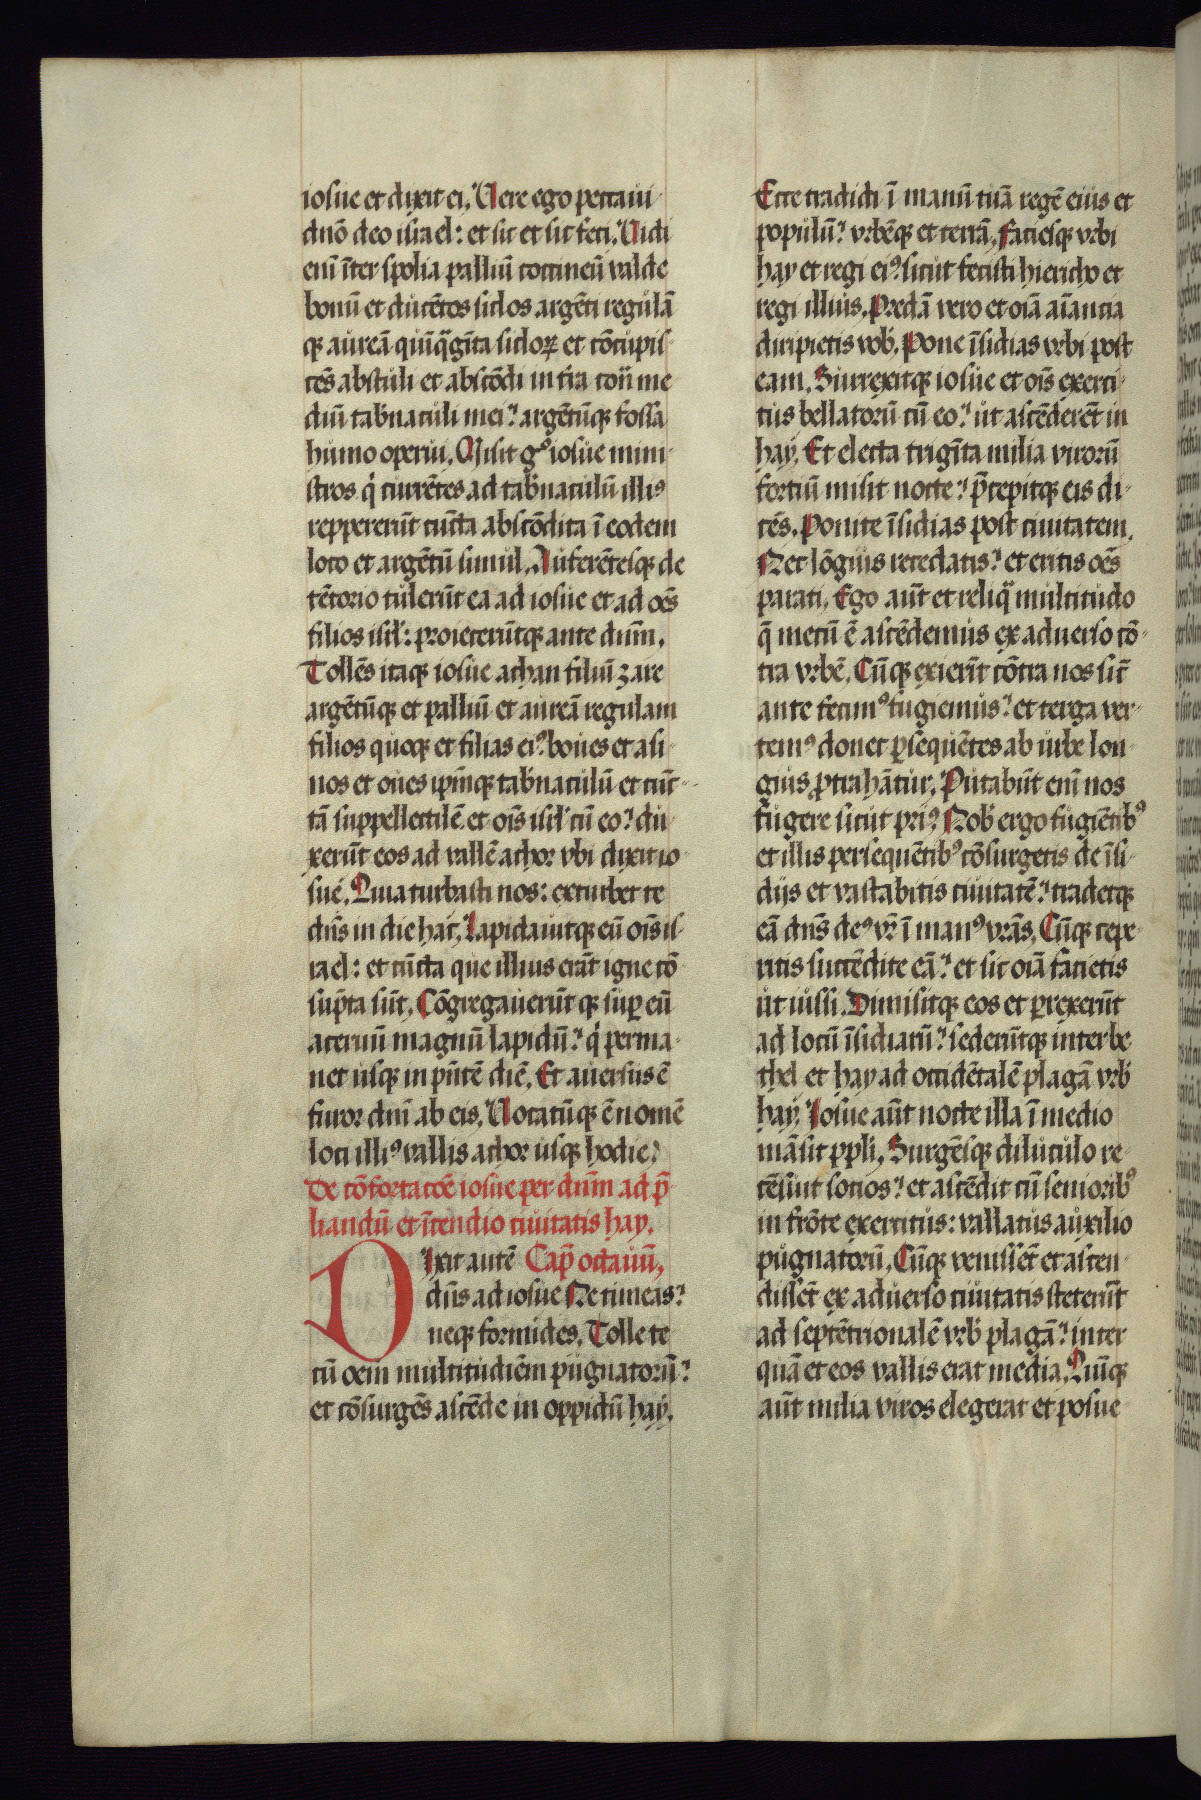 iosue et dixit ei. Vere ego peccaui
dnō deo israel: et sic et sic feci. Vidi
enī īter spolia palliū coccineū valde
bonū et ducētos siclos argēti regulā
qꝫ aureā quīquagīta siclorꝝ et cōcupis-
cēs abstuli et abscōdi in tra contͣ me
diū tab̓naculi mei? argētūqꝫ fossa
humo operui. Misit gͦ iosue mini-
stros qͥ currētes ad tab̓naculū illiꝰ
reppererūt cūcta abscōdita ī eodem
loco et argētū simul. Auferētesqꝫ de
tētorio tulerūt ea ad iosue et ad oēs
filios isrl̓: proiecerūtqꝫ ante dnm̄.
Tollēs itaqꝫ iosue achan filiū zare
argētūqꝫ et palliū et aureā regulam
filios quoqꝫ et filias eiꝰ boues et asi-
nos et oues ip̄mqꝫ tab̓naculū et cūc-
tā suppellectilē. et oīs isrl̓ cū eo? du-
xerūt eos ad vallē achor vbi dixit io-
sue. Quia turbasti nos: exturbet te
dn̄s in die hac. Lapidauitqꝫ eū oīs is-
rael: et cūcta que illius erāt igne cō-
sūpta sūt. Cōgregauerūt qꝫ suꝑ eū
aceruū magnū lapidū? qͥ perma-
net usqꝫ in pn̄tē diē. Et auersus ē
furor dnī ab eis. Vocatūqꝫ ē nomē
loci illiꝰ vallis achor usqꝫ hodie?
De cōfortacōe iosue per dnm̄ ad p̄-
liandū et īcendio ciuitatis hay.
Dixit autē Cap̄ octauū.
dn̄s ad iosue Ne timeas?
neqꝫ formides. Tolle te
cū oēm multitudiēm pugnatorū?
et cōsurgēs ascēde in oppidū hay.
Ecce tradidi ī manū tuā regē eius et
populū? vrbēqꝫ et terrā. faciesqꝫ vrbi
hay et regi eiꝰ sicut fecisti hiericho et
regi illius. Predā vero et oīa aīancia
diripietis vob̓. Pone īsidias vrbi post
eam. Surrexitqꝫ iosue et oīs exerci-
tus bellatorū cū eo? ut ascēderēt in
hay. Et electa trigīta milia virorū
fortiū misit nocte? p̄cepitqꝫ eis di-
cēs. Ponite īsidias post ciuitatem.
Nec lōgius recedatis? et eritis oēs
parati. Ego aūt et reliqͣ multitudo
q̄ mecū ē ascēdemus ex aduerso cō-
tra vrbē. Cūqꝫ exierīt cōtra nos sic̄
ante fecimꝰ fugiemus? et terga ver-
temꝰ donec ꝑsequētes ab urbe lon-
gius ꝓtrahātur. Putabūt enī nos
fugere sicut priꝰ. Nob̓ ergo fugiētibꝰ
et illis persequētibꝰ cōsurgetis de īsi-
dijs et vastabitis ciuitatē? tradetqꝫ
eā dn̄s deꝰ vr̄ ī manꝰ vrās. Cūqꝫ cepe-
ritis succēdite eā? et sic oīa facietis
ut iussi. Dimisitqꝫ eos et ꝑrexerūt
ad locū īsidiarū? sederūtqꝫ inter be-
thel et hay ad occidētalē plagā vrb̓
hay. Iosue aūt nocte illa ī medio
māsit ppli. Surgēsqꝫ diluculo re-
cēsuit socios? et ascēdit cū senioribꝰ
in frōte exercitus: vallatus auxilio
pugnatorū. Cūqꝫ venissēt et ascen-
dissēt ex aduerso ciuitatis steterūt
ad septētrionalē vrb̓ plagā? inter
quā et eos vallis erat media. Quīqꝫ
aūt milia viros elegerat et posue-